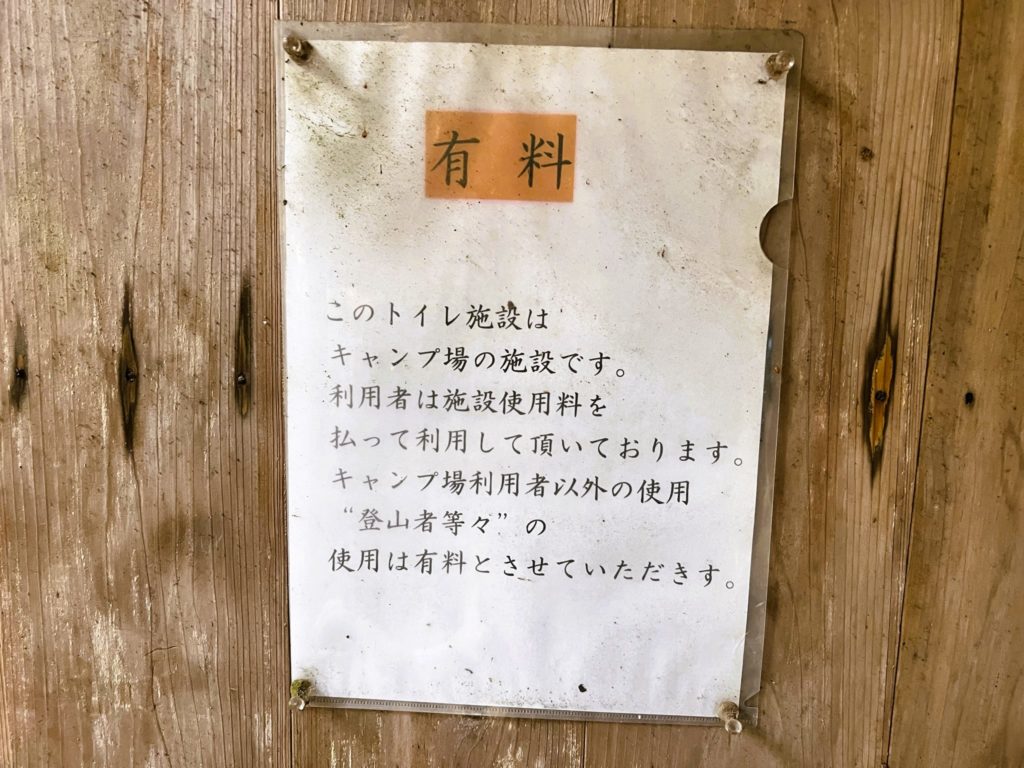 有 料
このトイレ施設は
キャンプ場の施設です。
利用者は施設使用料を
払って利用して頂いております。
キャンプ場利用者以外の使用
“登山者等々”の
使用は有料とさせていただきす。